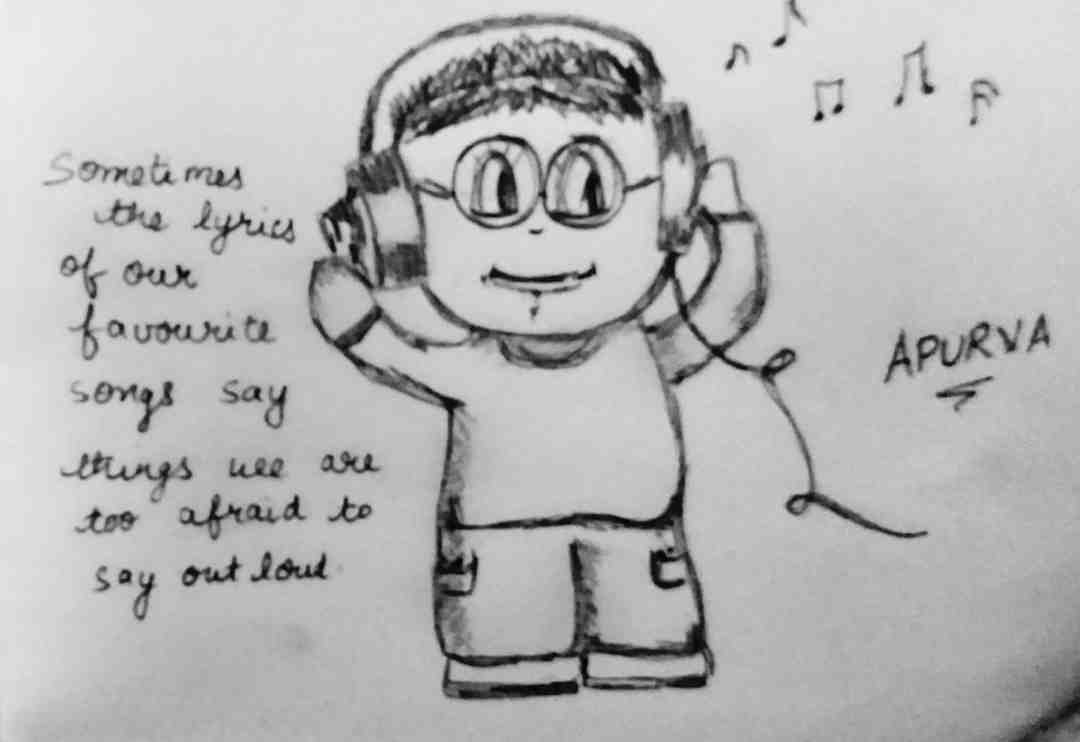 Sometimes
the lyrics
of our
favourite
songs say
things wee are
too afraid to
say out loud
APURVA